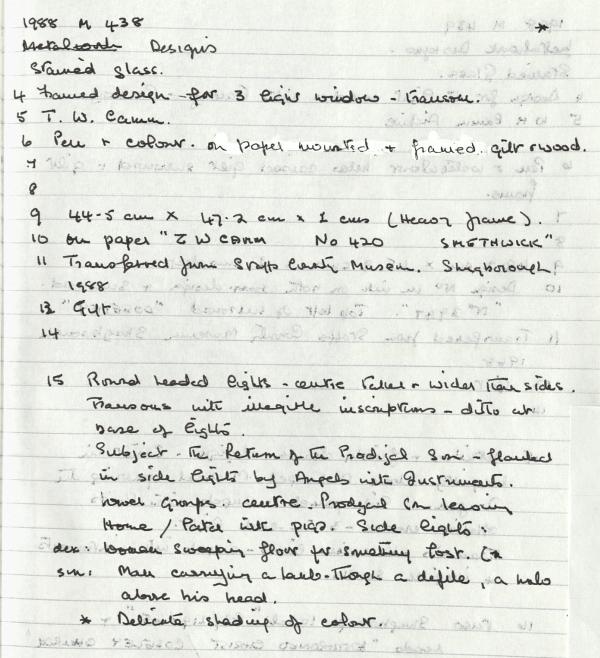 1988 M 438 *
Metalwork Designs
Stained glass.
4 Framed design - for 3 light window - transom.
5 T. W. Camm.
6 Pen + colour. on paper mounted + framed. gilt + wood.
7
8
9 44.5 cm x 47.2 cm x 1 cms (Heavy frame).
10 on paper "T W CAMM No 420 SMETHWICK"
11 Transferred from Staffs County Museum. Shugborough!
1988
13 "Gift"
14
15 Round headed lights - centre taller + wider than sides.
Transoms with illegible inscriptions - ditto at
base of lights.
Subject - The Return of the Prodigal Son - flanked
in side lights by Angels with Instruments.
Lower groups centre Prodigal Son leaving
Home / Later with pigs. - Side lights:
dex: Woman sweeping floor for something lost.
sin: Man carrying a lamb through a defile, a halo
above his head.
* Delicate shading of colour.